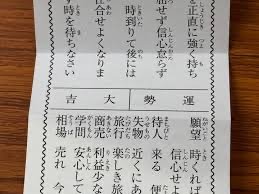 を正直に強く持ち
屈せず信心怠らず
時到りて後には
仕合せよくなりま
す時を待ちなさい
運勢
大吉
願望 時くれば
信心せよ
待人 来る 便
失物 近くにあ
旅行 楽しき旅
商売 利益な
学問 安心して
相場 売れ 今